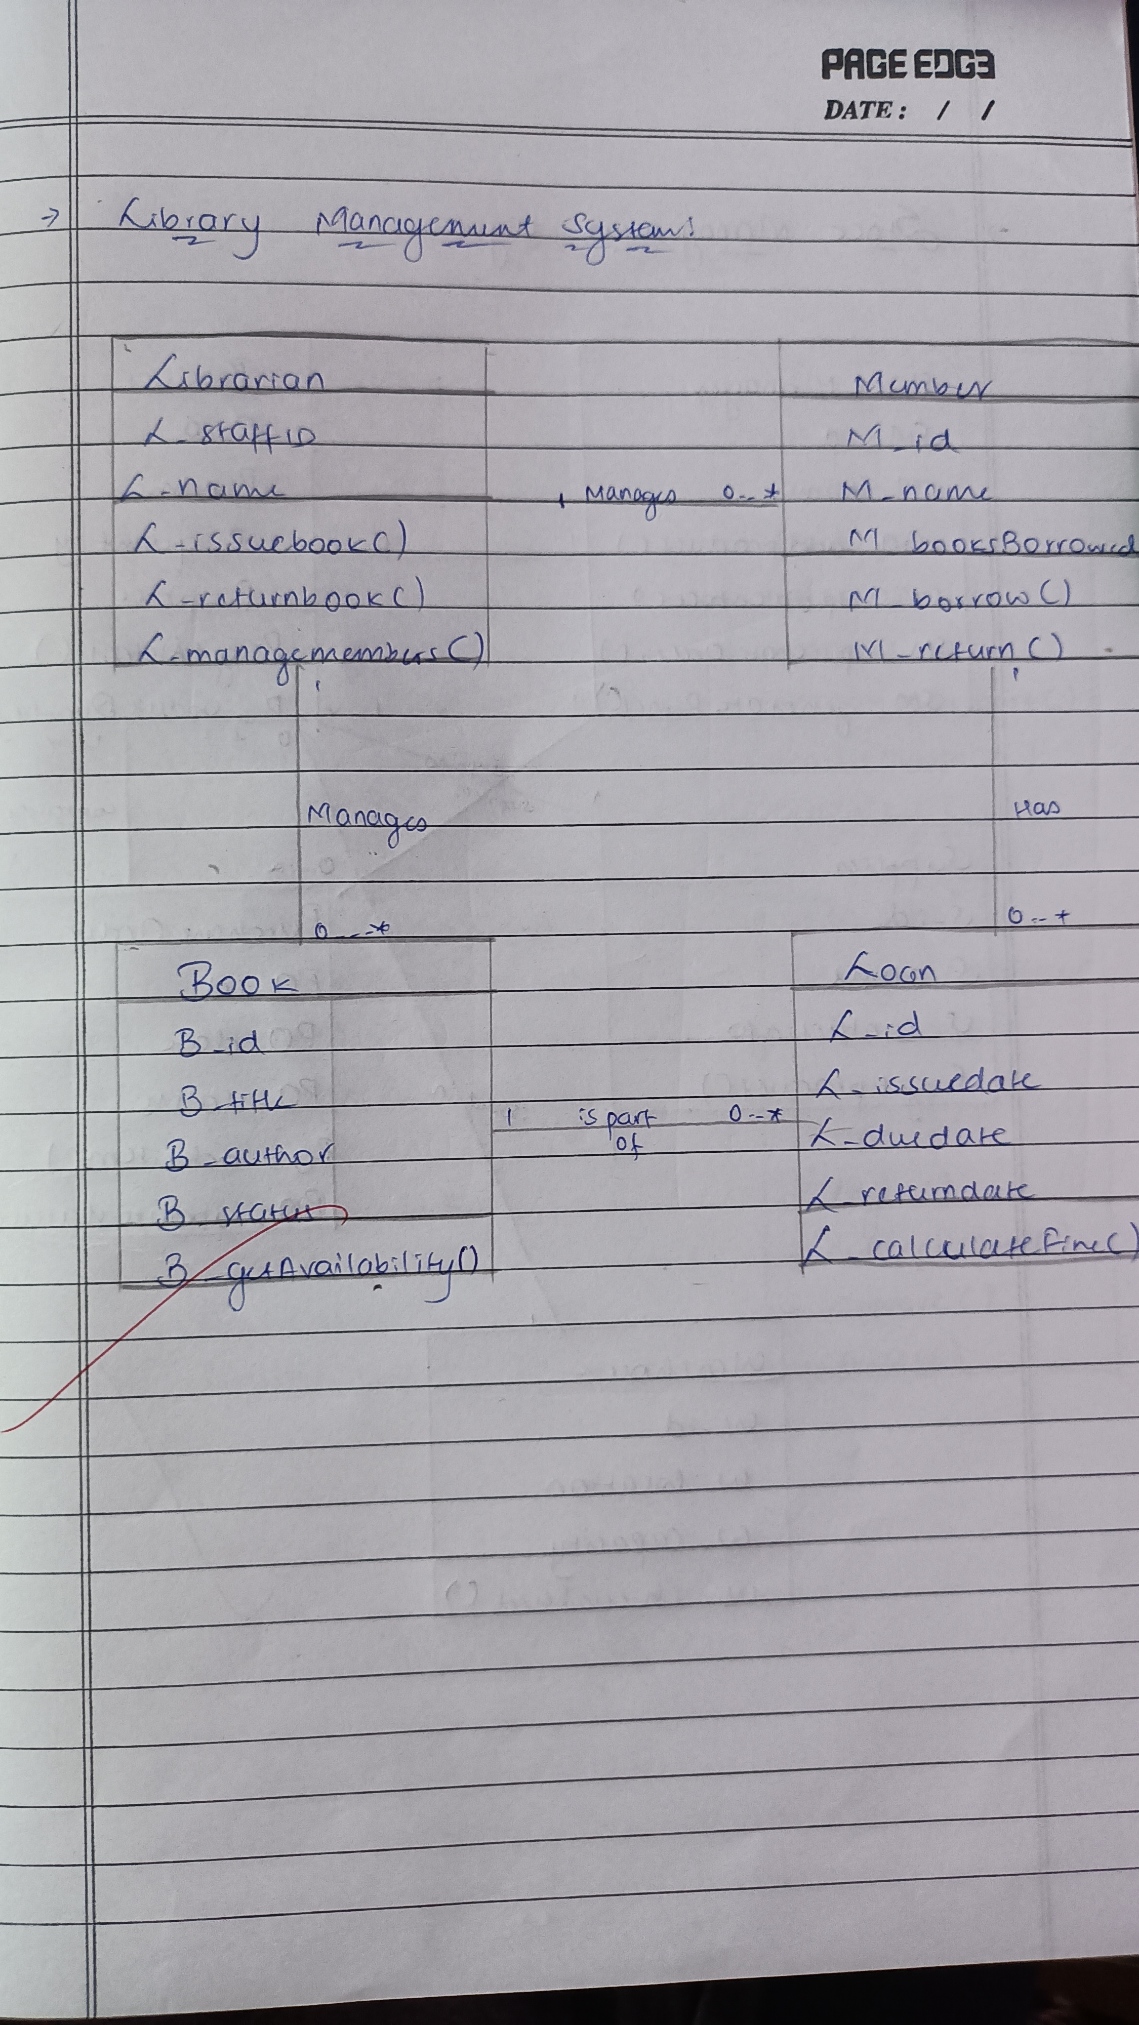 PAGE EDGE
DATE: / /
→ Library Management System:
Librarian
L_staffID
L_name
L_issuebook()
L_returnbook()
L_managemembers()
1 Manages 0..*
Member
M_id
M_name
M_booksBorrowed
M_borrow()
M_return()
1
Manages
0..*
1
Has
0..*
Book
B_id
B_title
B_author
B_status
B_getAvailability()
1 is part 0..*
of
Loan
L_id
L_issuedate
L_duedate
L_returndate
L_calculateFine()